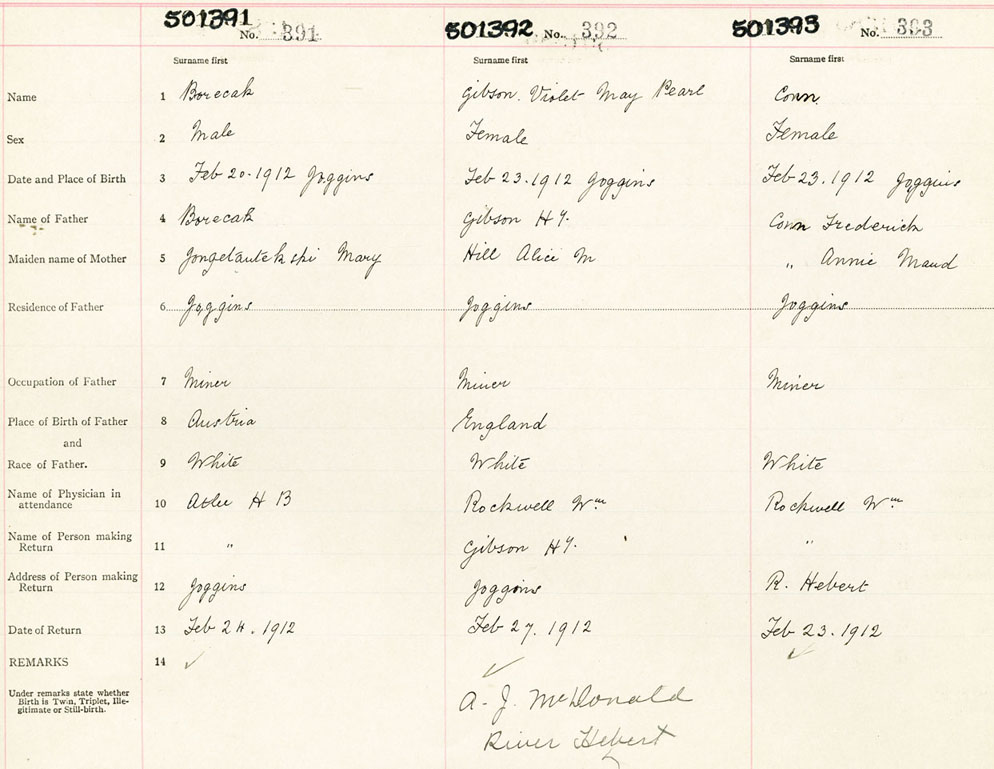 501391 No. 391 501392 No. 392 501393 No. 393
Surname first Surname first Surname first
Name 1 Borecak Gibson. Violet May Pearl Conn
Sex 2 Male Female Female
Date and Place of Birth 3 Feb 20.1912 Joggins Feb 23.1912 Joggins Feb 23.1912 Joggins
Name of Father 4 Borecak Gibson Hy. Conn Frederick
Maiden name of Mother 5 Mary Hill Alice M „ Annie Maud
Residence of Father 6 Joggins Joggins Joggins
Occupation of Father 7 Miner Miner Miner
Place of Birth of Father 8 Austria England
and
Race of Father. 9 White White White
Name of Physician in
attendance 10 Atlee H B Rockwell Wm Rockwell Wm
Name of Person making
Return 11 " Gibson Hy. "
Address of Person making
Return 12 Joggins Joggins R. Hebert
Date of Return 13 Feb 24.1912 Feb 27.1912 Feb 23.1912
REMARKS 14 ✓ ✓ ✓
Under remarks state whether
Birth is Twin, Triplet, Ille-
gitimate or Still-birth.
A. J. McDonald
River Hebert